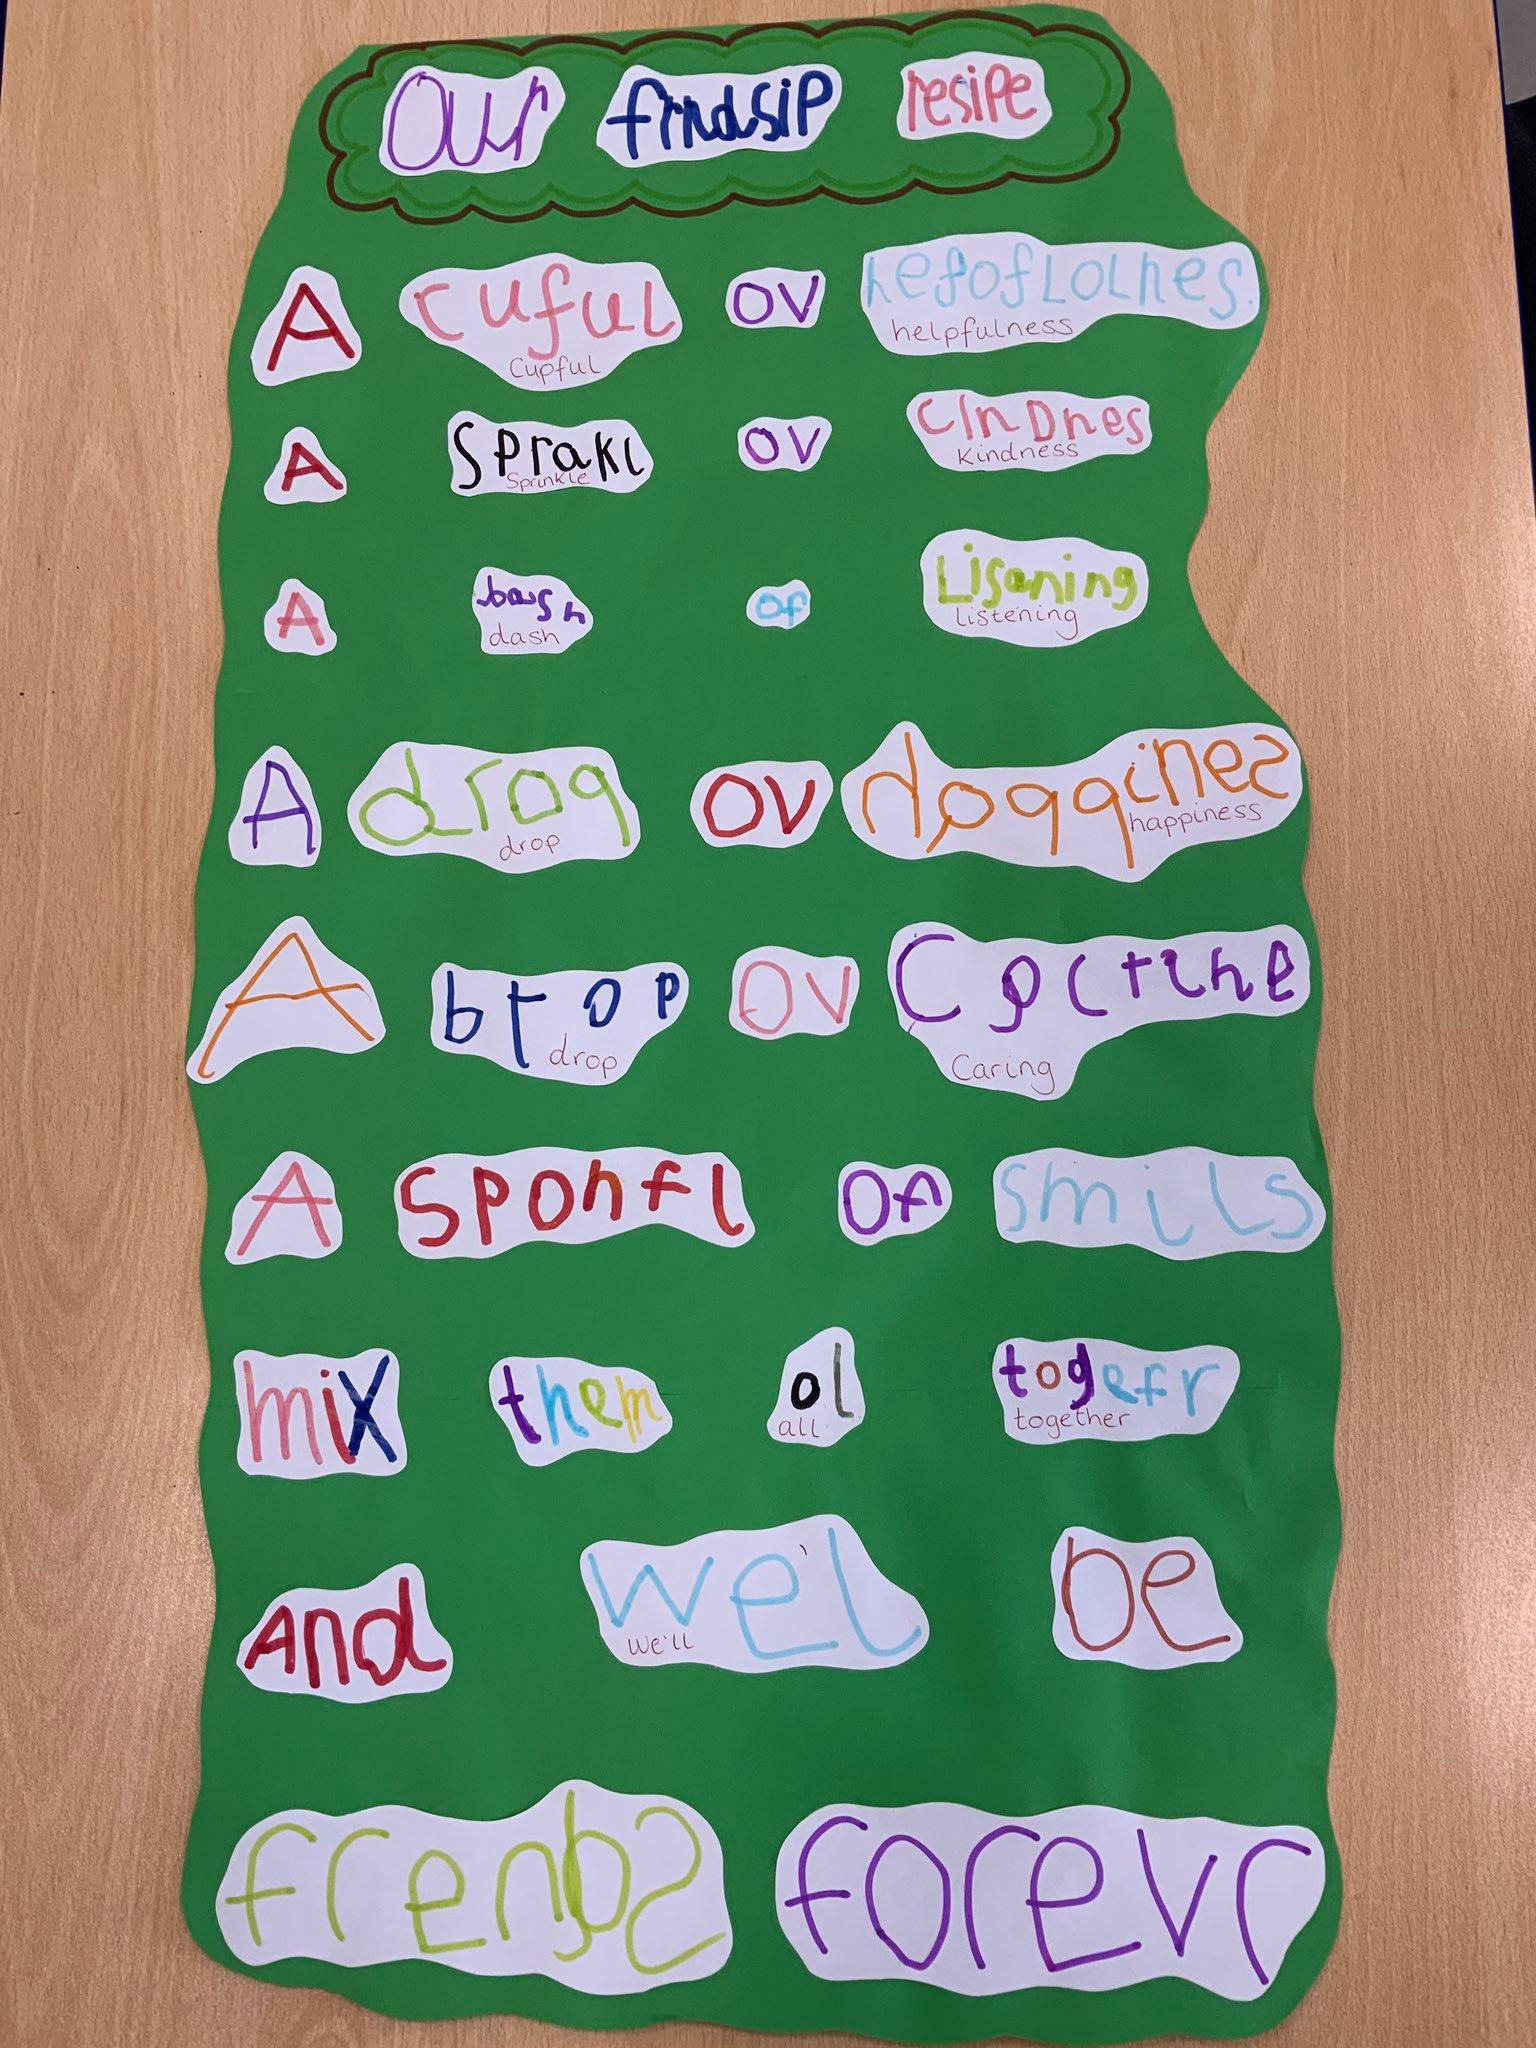 Our frindsip resipe
A cuful ov hefoflolnes.
Cupful helpfulness
A Sprakl ov cinDnes
Sprinkle Kindness
A bash of Lisening
dash listening
A droq ov hoqqines
drop happiness
A brop ov
drop Caring
A sponfl of smils
mix them ol togefr
all together
And we'l be
we'll
frenbs forevr